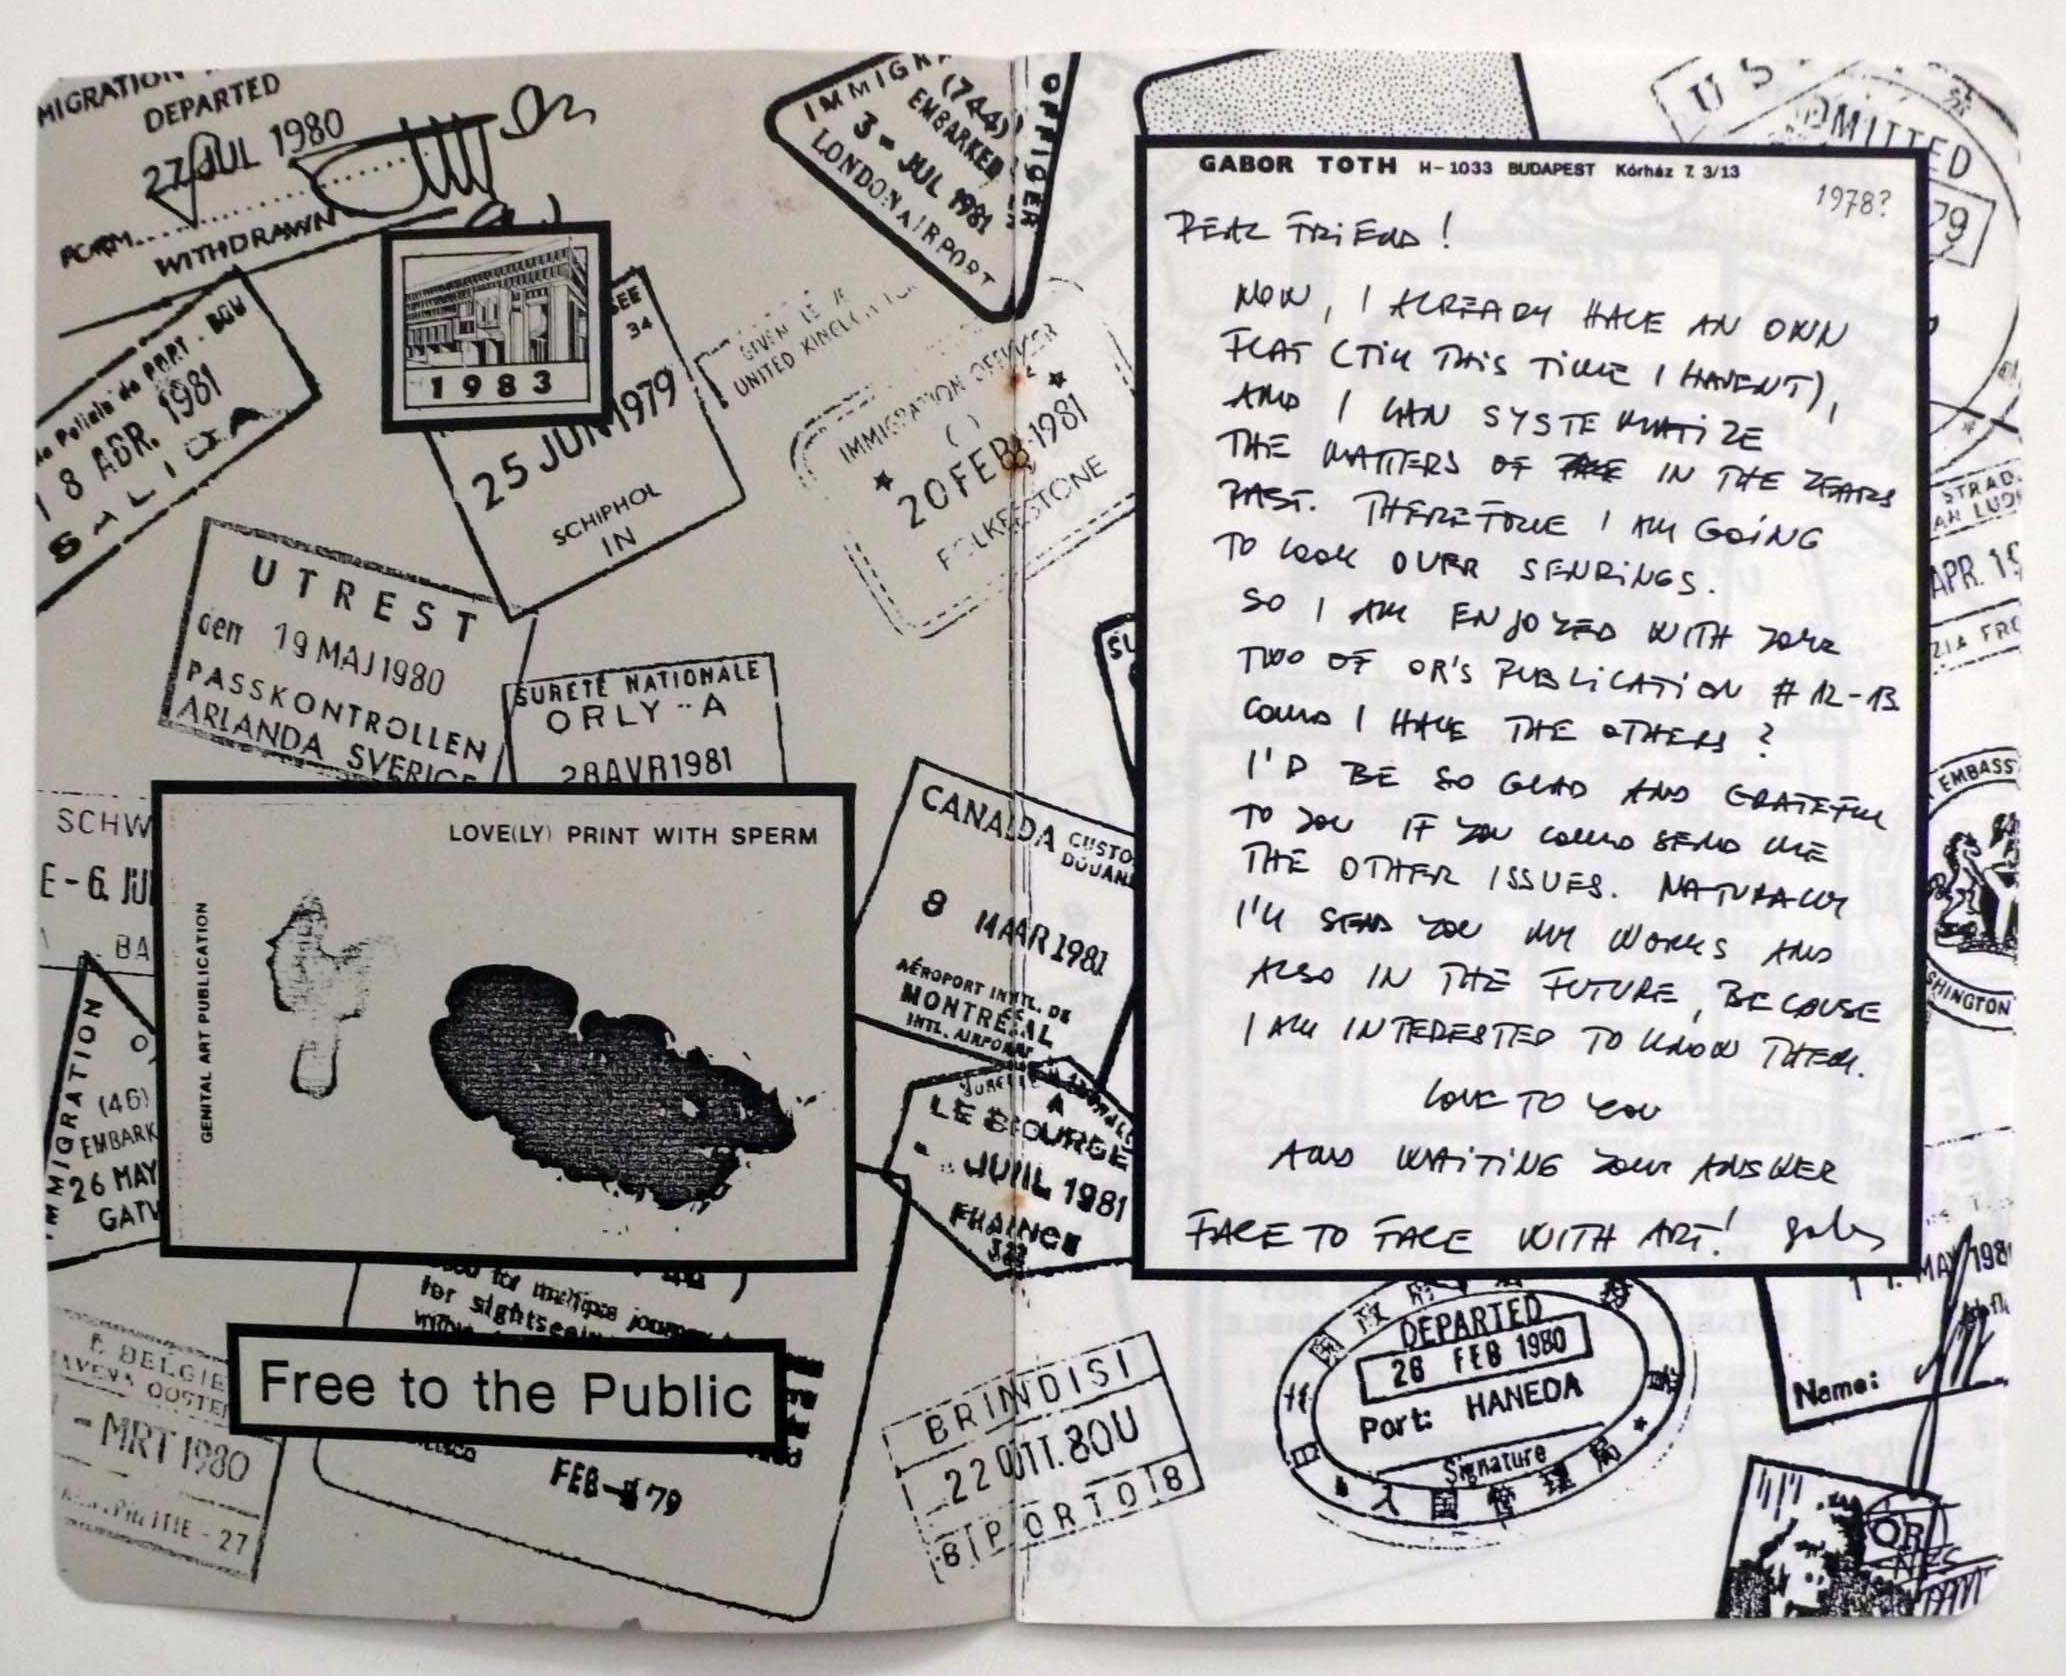 MIGRATION
DEPARTED
27 JUL 1980
WITHDRAWN
IMMIGRA
(744)
EMBARKED
3 - JUL 1981
LONDON AIRPORT
OFFICER
1983
de PORT - BGW
18 ABR. 1981
SALIDA
SEE
34
25 JUN 1979
SCHIPHOL
IN
GIVEN LE
UNITED KING
IMMIGRATION OFFICER
( )
20 FEB 1981
FOLKESTONE
UTREST
den 19 MAJ 1980
PASSKONTROLLEN
ARLANDA SVERIGE
SURETÉ NATIONALE
ORLY - A
28 AVR 1981
SCHW
E - 6. JU
BA
LOVE(LY) PRINT WITH SPERM
GENITAL ART PUBLICATION
CANADA CUSTO
DOUAN
8 MAR 1981
AÉROPORT INTL. DE
MONTRÉAL
INTL. AIRPORT
IMMIGRATION
(46)
EMBARK
26 MAY
GATW
A
LE BOURGET
JUIL 1981
FRANCE
for multiple journey
for sightseein
Free to the Public
FEB 79
BELGIE
- MRT 1980
- 27
BRINDISI
22 OTT. 80 U
8 PORTO 18
GABOR TOTH H-1033 BUDAPEST Kórház 7. 3/13
1978?
DEAR FRIEND!
NOW, I ALREADY HAVE AN OWN
FLAT (TILL THIS TIME I HAVENT),
AND I CAN SYSTEMATIZE
THE MATTERS OF IN THE YEARS
PAST. THEREFORE I AM GOING
TO LOOK OVER SENDINGS.
SO I AM ENJOYED WITH YOUR
TWO OF OR'S PUBLICATION # 12-13
COULD I HAVE THE OTHERS?
I'D BE SO GLAD AND GRATEFUL
TO YOU IF YOU COULD SEND ME
THE OTHER ISSUES. NATURALLY
I'LL SEND YOU MY WORKS AND
ALSO IN THE FUTURE, BECAUSE
I AM INTERESTED TO KNOW THEM.
LOVE TO YOU
AND WAITING YOUR ANSWER
FACE TO FACE WITH ART!
U S
ADMITTED
79
STRAD.
AN LUD
APR. 19
ZIA FRO
EMBASS
SHINGTON
MAY 198
Name:
DEPARTED
28 FEB 1980
Port: HANEDA
Signature
日 入国管理局
OR